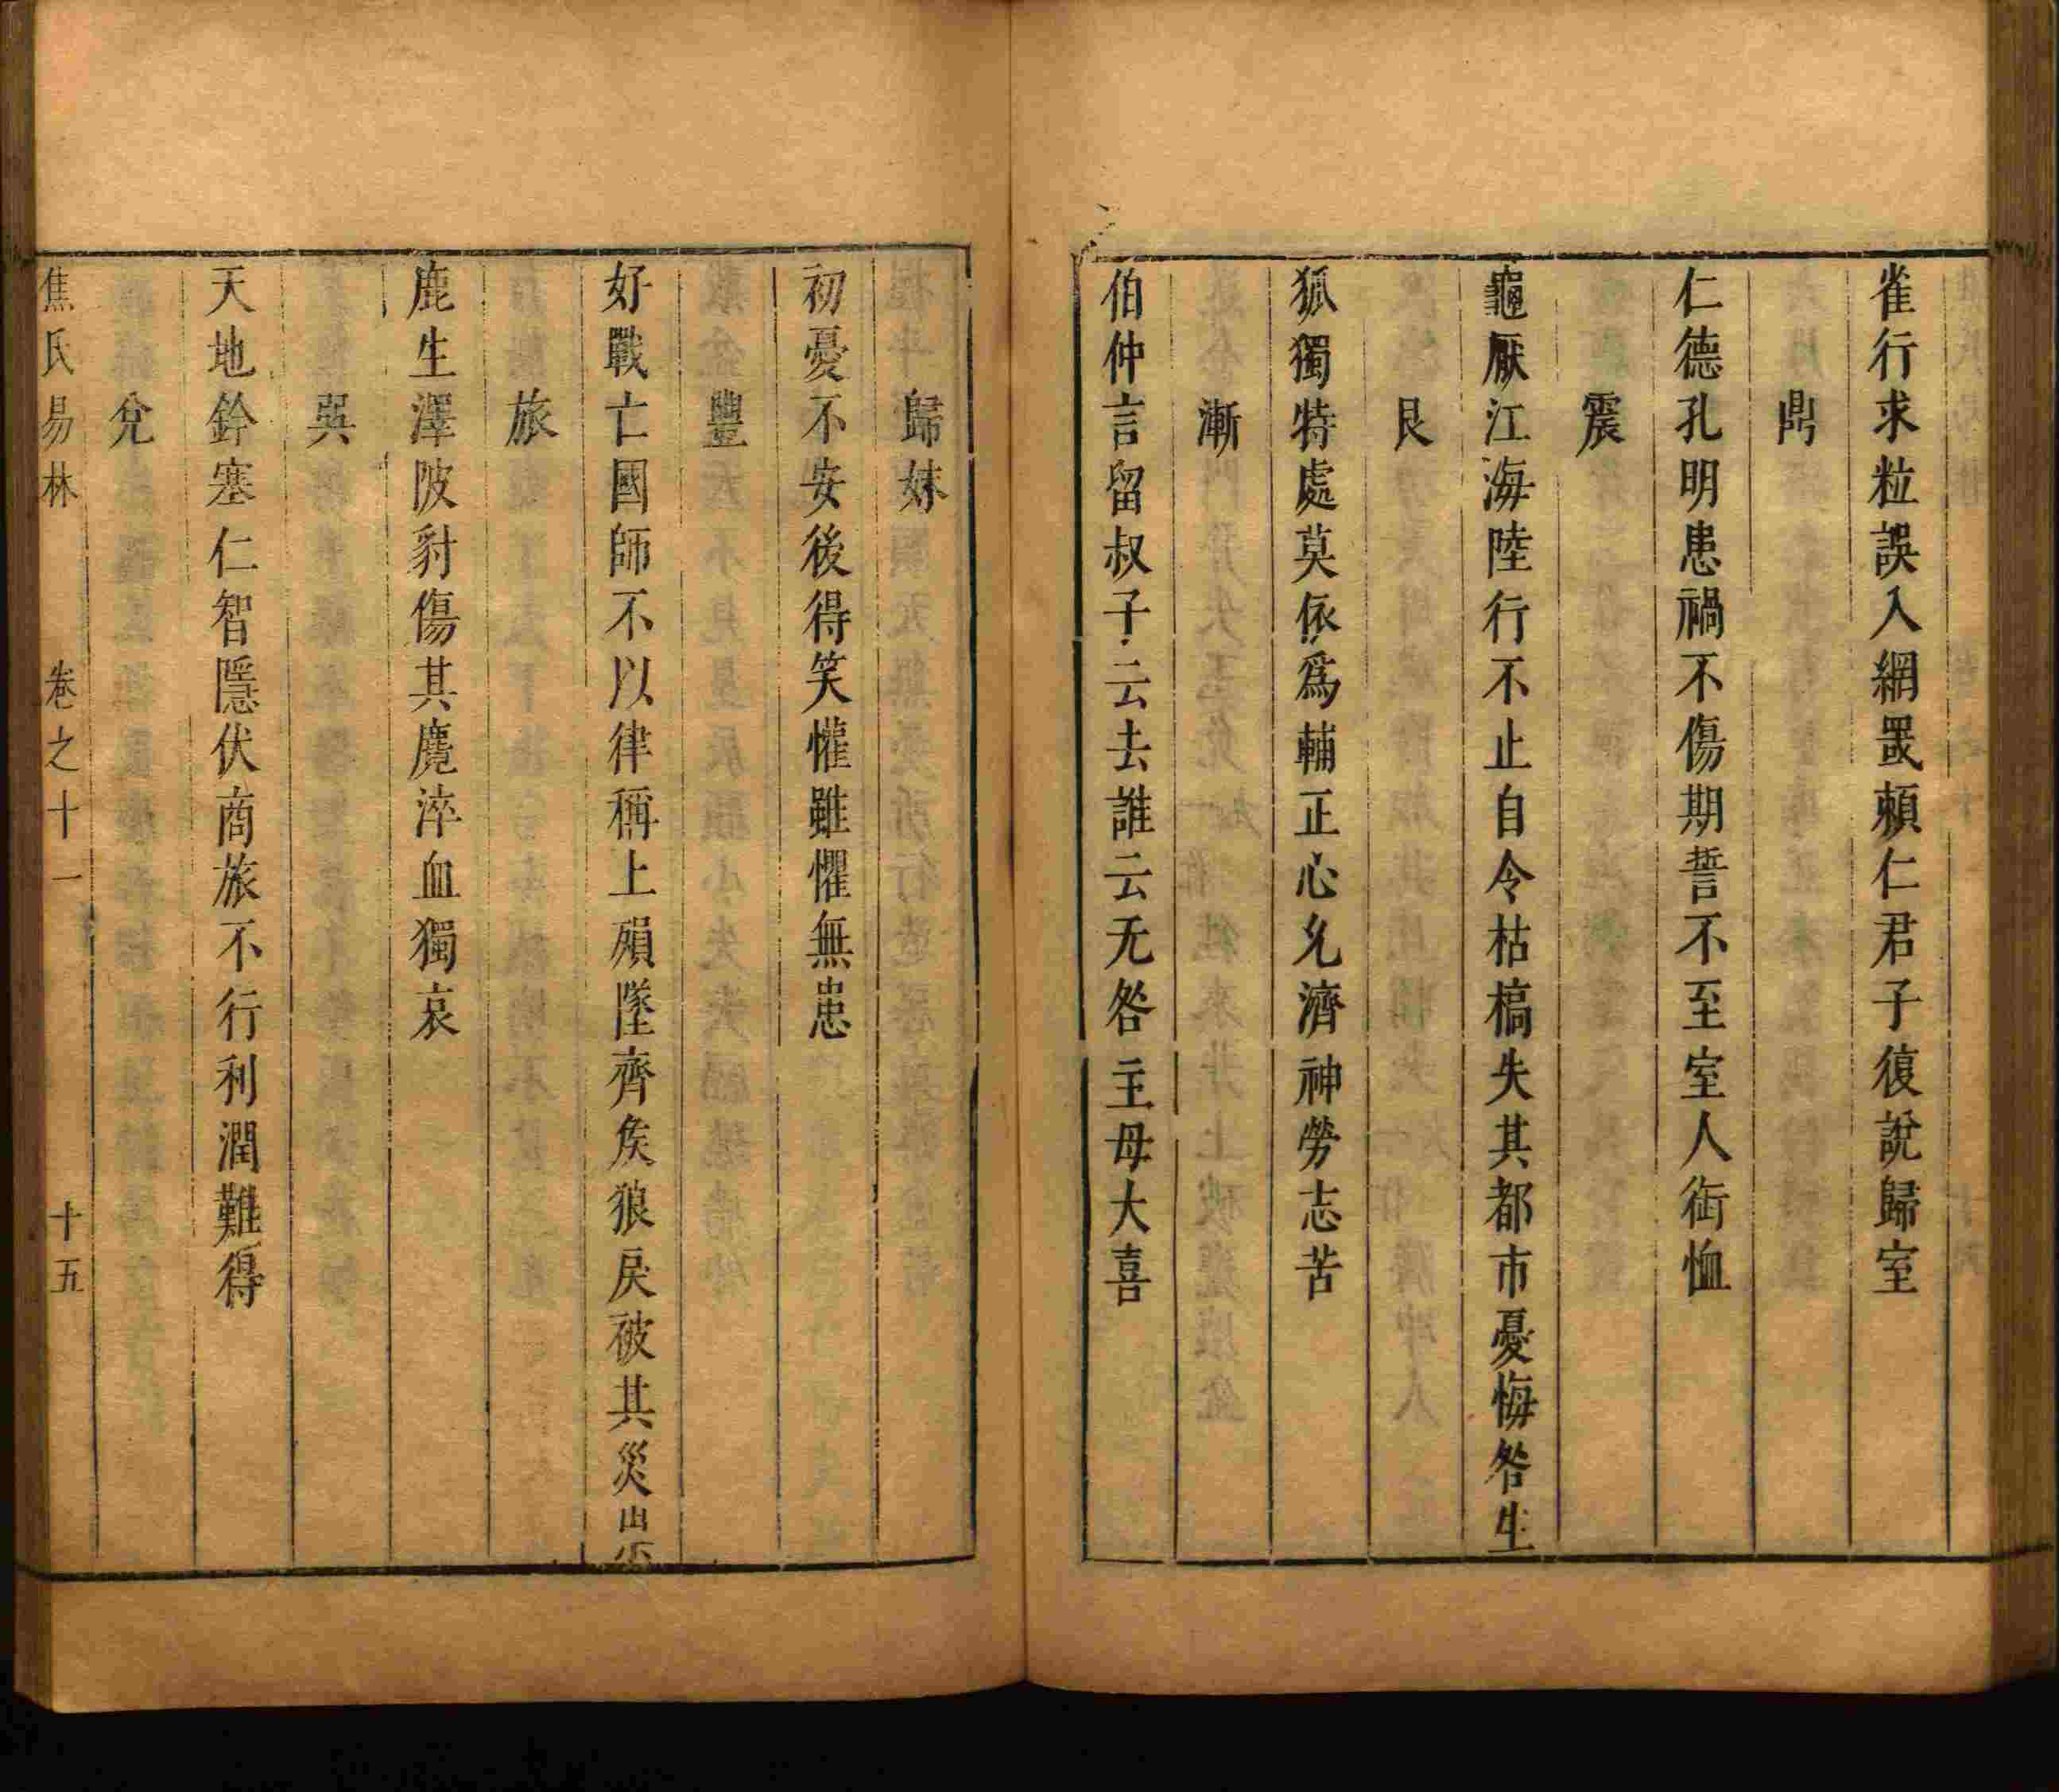 雀行求粒誤入網罭頼仁君子復說歸室
鼎
仁德孔明患禍不傷期誓不至室人銜恤
震
龜厭江海陸行不止自令枯槁失其都市憂悔咎生
艮
狐獨特處莫依爲輔正心允濟神勞志苦
漸
伯仲言留叔子云去誰云无咎主母大喜
歸妹
初憂不安後得笑懽雖懼無患
豐
好戰亡國師不以律稱上殞墜齊矦狼戾破其災
旅
鹿生澤陂豺傷其麑淬血獨哀
巽
天地鈐塞仁智隱伏商旅不行利潤難得
兌
焦氏易林 卷之十一 十五